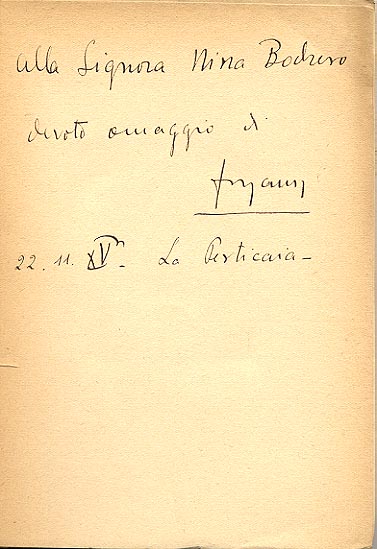 alla Signora Nina Bodrero
devoto omaggio di
22. 11. XV°. La Perticaia –